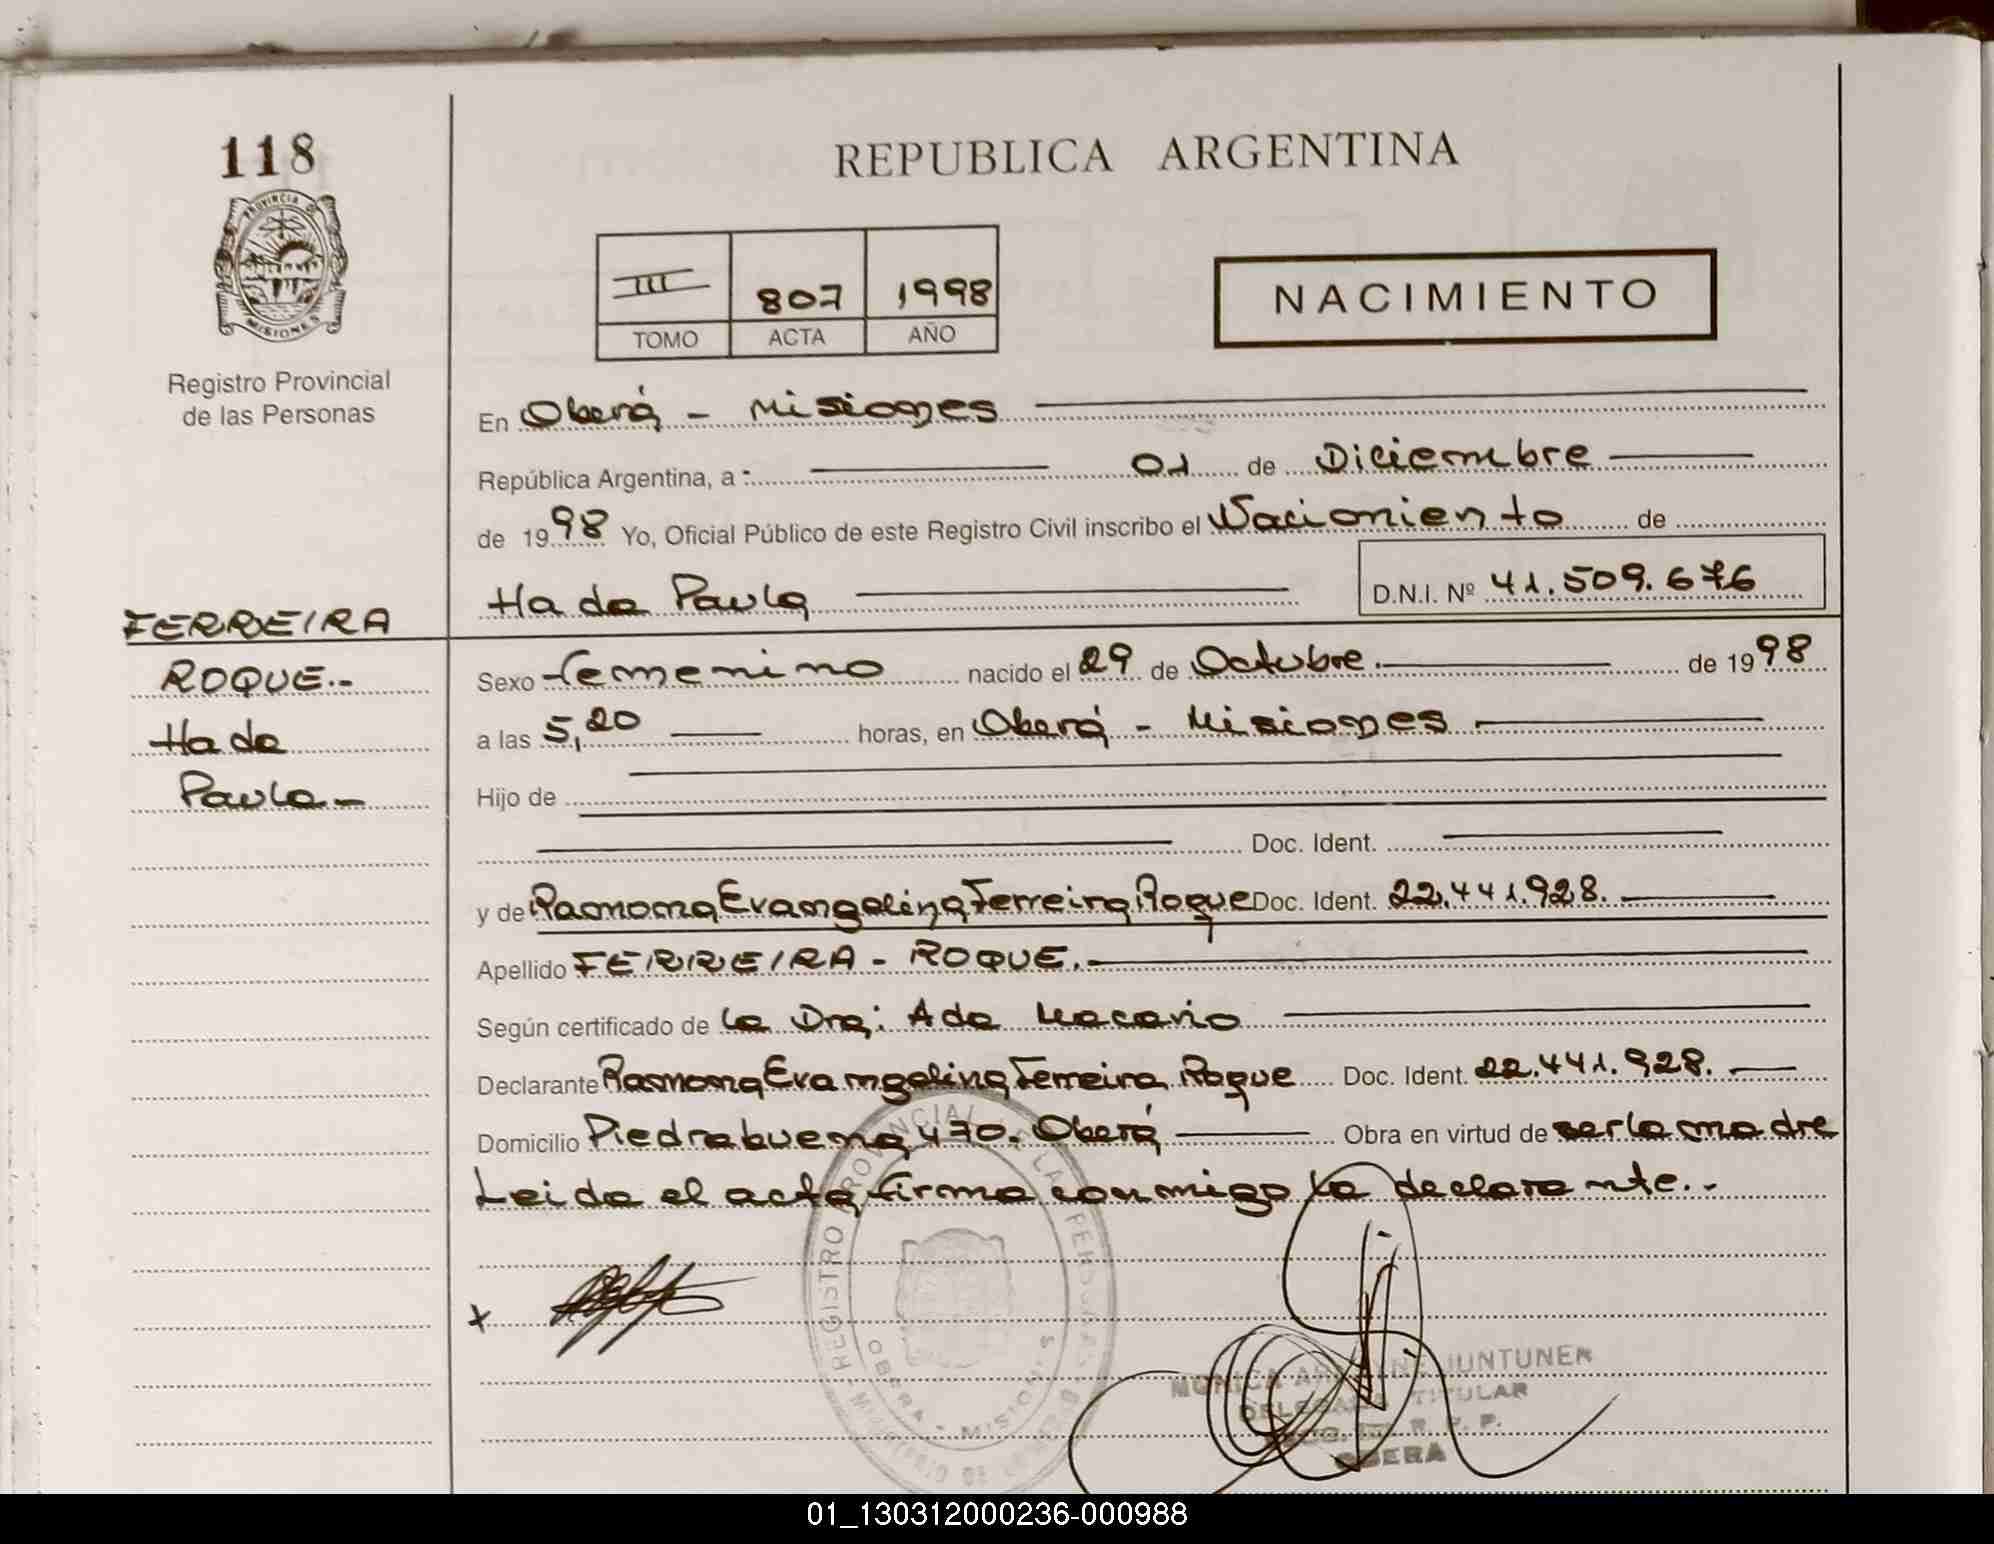 118
PROVINCIA DE
MISIONES
Registro Provincial
de las Personas
REPUBLICA ARGENTINA
III 807 1998
TOMO ACTA AÑO
NACIMIENTO
En Oberá - Misiones
República Argentina, a : 01 de Diciembre
de 1998 Yo, Oficial Público de este Registro Civil inscribo el Nacimiento de
Hada Paula D.N.I. Nº 41.509.676
FERREIRA
ROQUE.-
Hada
Paula-
Sexo femenino nacido el 29 de Octubre. de 1998
a las 5,20 horas, en Oberá - Misiones
Hijo de
Doc. Ident.
y de Ramona Evangelina Ferreira Roque Doc. Ident. 22.441.928.
Apellido FERREIRA - ROQUE.
Según certificado de la Dra: Ada Macario
Declarante Ramona Evangelina Ferreira Roque Doc. Ident. 22.441.928.
Domicilio Piedrabuena 470. Oberá Obra en virtud de ser la madre
Leida el acta firma conmigo la declarante.-
x
REGISTRO PROVINCIAL DE LAS PERSONAS
OBERA - MISIONES
MONICA JUNTUNEN
TITULAR
R. P. P.
OBERA
01_130312000236-000988